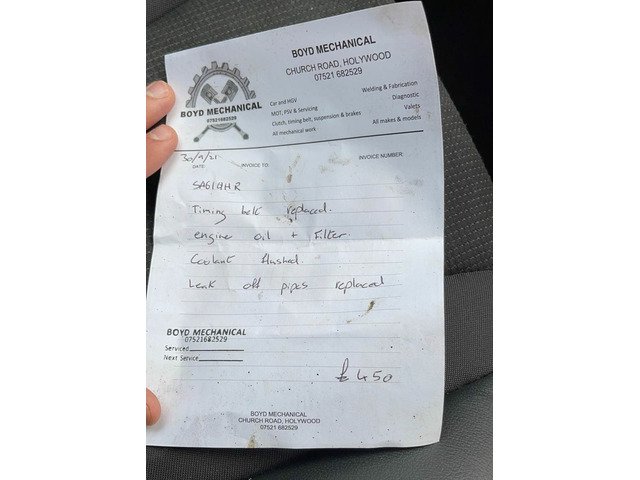 BOYD MECHANICAL
CHURCH ROAD, HOLYWOOD
07521 682529
BOYD MECHANICAL
07521682529
Car and HGV
MOT, PSV & Servicing
Clutch, timing belt, suspension & brakes
All mechanical work
Welding & Fabrication
Diagnostic
Valets
All makes & models
30/9/21
DATE: INVOICE TO: INVOICE NUMBER:
Timing belt replaced.
engine oil + Filter.
Coolant flushed
Leak off pipes replaced
BOYD MECHANICAL
07521682529
Serviced
Next Service
£450
BOYD MECHANICAL
CHURCH ROAD, HOLYWOOD
07521 682529